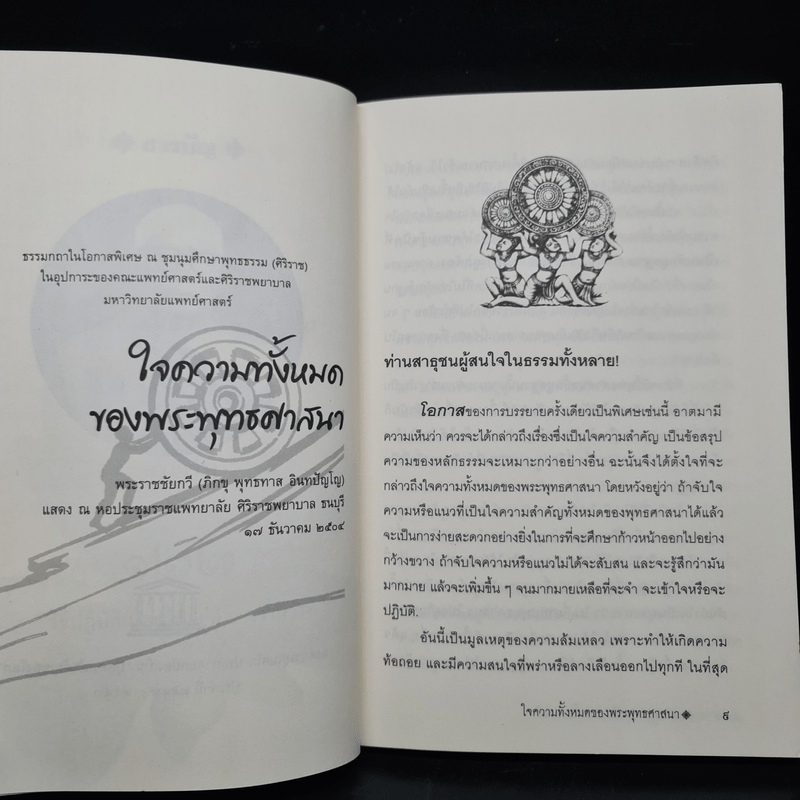 ธรรมกถาในโอกาสพิเศษ ณ ชุมนุมศึกษาพุทธธรรม (ศิริราช)
ในอุปการะของคณะแพทย์ศาสตร์และศิริราชพยาบาล
มหาวิทยาลัยแพทย์ศาสตร์
ใจความทั้งหมด
ของพระพุทธศาสนา
พระราชชัยกวี (ภิกขุ พุทธทาส อินทปัญโญ)
แสดง ณ หอประชุมราชแพทยาลัย ศิริราชพยาบาล ธนบุรี
๑๗ ธันวาคม ๒๕๐๔
ท่านสาธุชนผู้สนใจในธรรมทั้งหลาย!
โอกาสของการบรรยายครั้งเดียวเป็นพิเศษเช่นนี้ อาตมามี
ความเห็นว่า ควรจะได้กล่าวถึงเรื่องซึ่งเป็นใจความสำคัญ เป็นข้อสรุป
ความของหลักธรรมจะเหมาะกว่าอย่างอื่น ฉะนั้นจึงได้ตั้งใจที่จะ
กล่าวถึงใจความทั้งหมดของพระพุทธศาสนา โดยหวังอยู่ว่า ถ้าจับใจ
ความหรือแนวที่เป็นใจความสำคัญทั้งหมดของพุทธศาสนาได้แล้ว
จะเป็นการง่ายสะดวกอย่างยิ่งในการที่จะศึกษาก้าวหน้าออกไปอย่าง
กว้างขวาง ถ้าจับใจความหรือแนวไม่ได้จะสับสน และจะรู้สึกว่ามัน
มากมาย แล้วจะเพิ่มขึ้น ๆ จนมากมายเหลือที่จะจำ จะเข้าใจหรือจะ
ปฏิบัติ.
อันนี้เป็นมูลเหตุของความล้มเหลว เพราะทำให้เกิดความ
ท้อถอย และมีความสนใจที่พร่าหรือลางเลือนออกไปทุกที ในที่สุด
ใจความทั้งหมดของพระพุทธศาสนา ๙